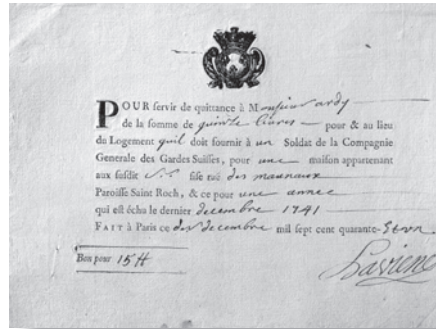 POUR servir de quittance à Monsieur ardy
de la somme de quinze Livres pour & au lieu
du Logement quil doit fournir à un Soldat de la Compagnie
Generale des Gardes Suisses, pour une maison appartenant
aux susdit Sr sise rue des
Paroisse Saint Roch, & ce pour une année
qui est échu le dernier decembre 1741
FAIT à Paris ce decembre mil sept cent quarante-
Bon pour 15 ₶